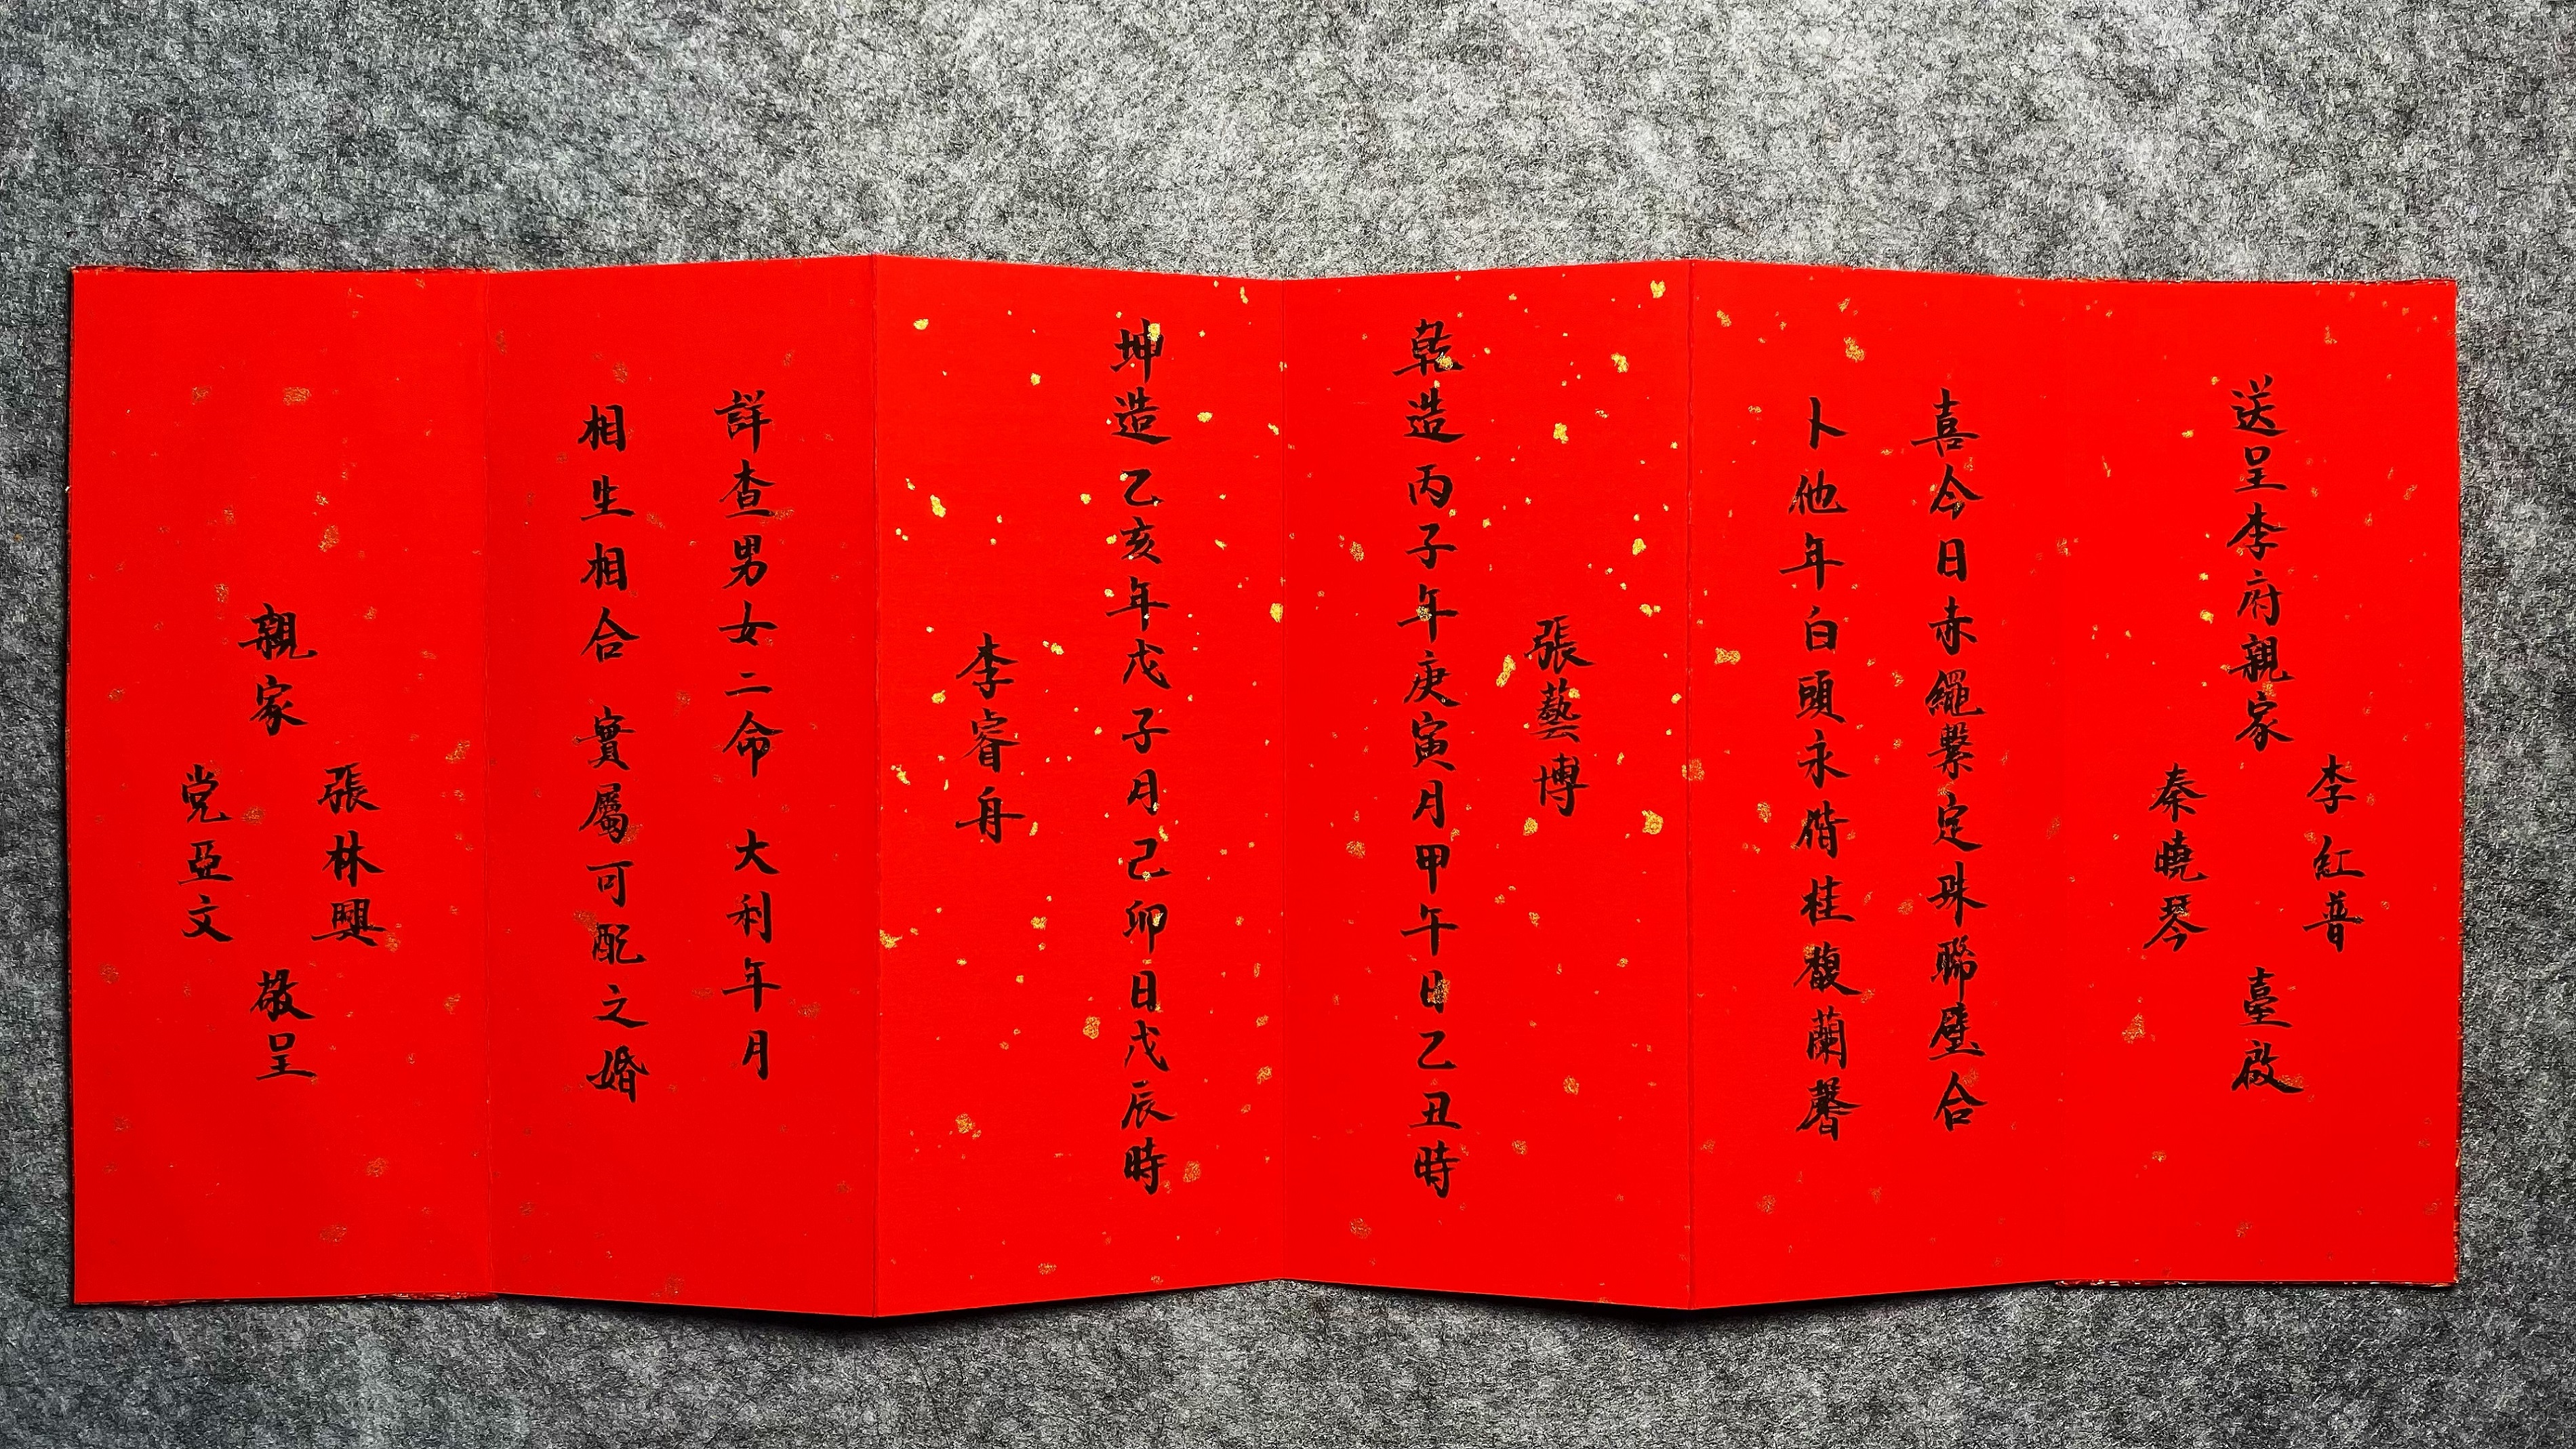 送呈李府親家
李紅普
秦曉琴
臺啟
喜今日赤繩繫定珠聯璧合
卜他年白頭永偕桂馥蘭馨
張藝博
乾造 丙子年庚寅月甲午日乙丑時
坤造 乙亥年戊子月己卯日戊辰時
李睿舟
詳查男女二命 大利年月
相生相合 實屬可配之婚
親家
張林興
党亞文
敬呈